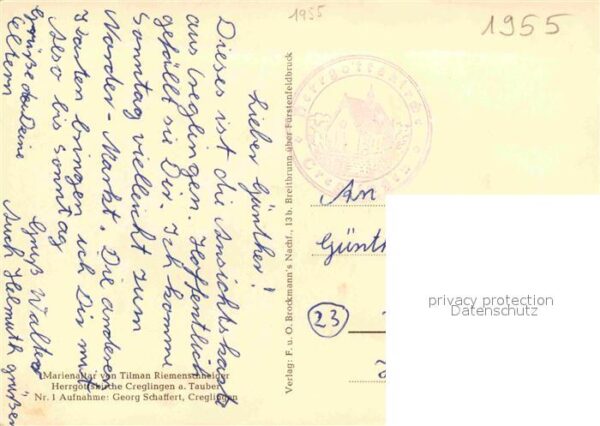 1955
1955
Lieber Günther!
Dieses ist die Ansichtskarte
aus Creglingen. Hoffentlich
gefällt sie Dir. Ich komme
Sonntag vielleicht zum
Norder-Markt. Die anderen
Karten bringen ich Dir mit
Also bis Sonntag
Gruß Walter
Grüße Deine
Eltern
Auch Helmuth grüßen
Marienaltar von Tilman Riemenschneider
Herrgottskirche Creglingen a. Tauber
Nr. 1 Aufnahme: Georg Schaffert, Creglingen
Verlag: F. u. O. Brockmann's Nachf., 13b. Breitbrunn über Fürstenfeldbruck
Herrgottskirche
An
Günth
23
privacy protection
Datenschutz